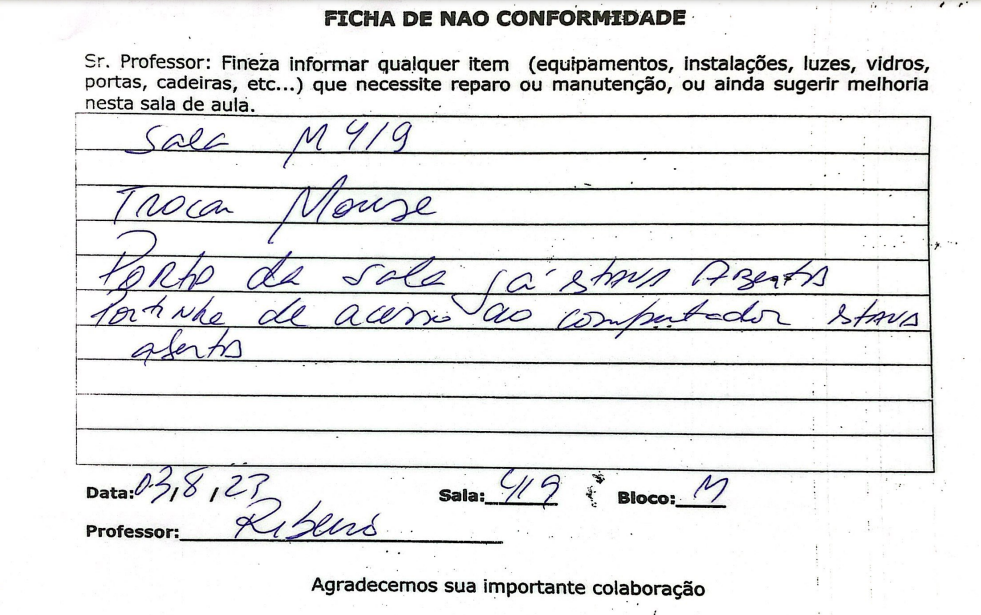 FICHA DE NAO CONFORMIDADE
Sr. Professor: Fineza informar qualquer item (equipamentos, instalações, luzes, vidros,
portas, cadeiras, etc...) que necessite reparo ou manutenção, ou ainda sugerir melhoria
nesta sala de aula.
Sala M 419
Trocar Mouse
Porta da sala já stava Aberta
Portinha de acesso ao computador stava
aberta
Data: 03,8,23 Sala: 419 Bloco: M
Professor: Ribeiro
Agradecemos sua importante colaboração